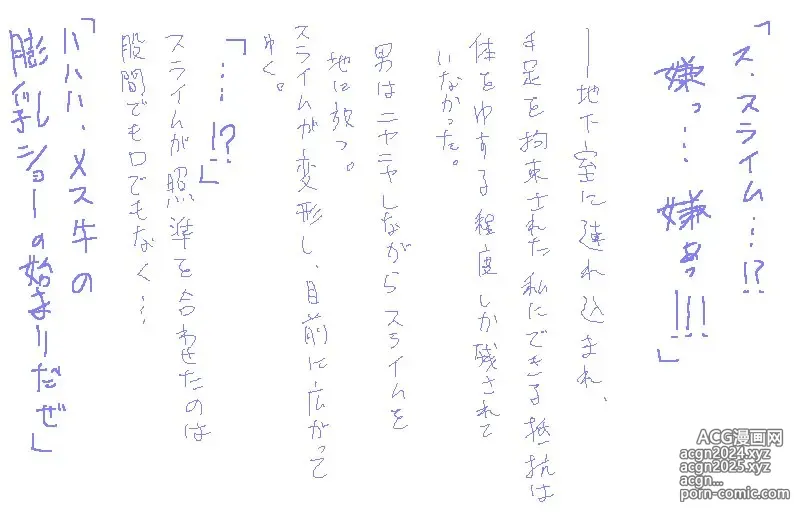 「ス、スライム…!?
嫌っ… 嫌ぁっ!!!」
──地下室に連れ込まれ、
手足を拘束された私にできる抵抗は
体をゆする程度しか残されて
いなかった。
男はニヤニヤしながらスライムを
地に放つ。
スライムが変形し、目前に広がって
ゆく。
「…!?」
スライムが照準を合わせたのは
股間でも口でもなく…
「ハハハ、メス牛の
膨乳ショーの始まりだぜ」
ACG漫画网
acgn2024.xyz
acgn2025.xyz
acgn...
porn-comic.com